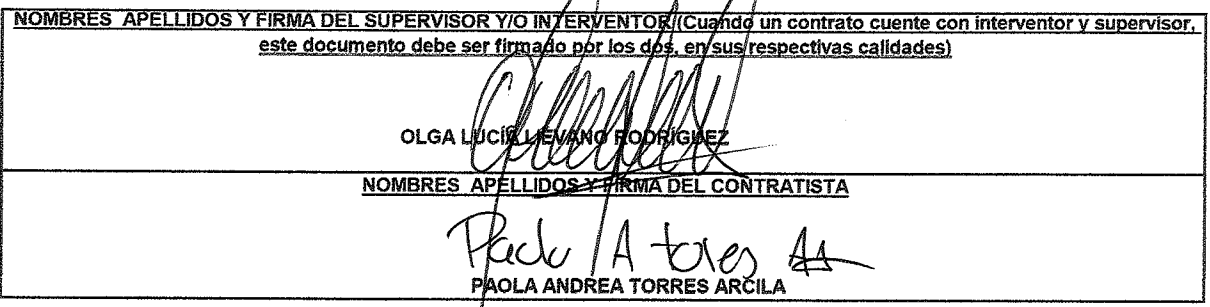 NOMBRES APELLIDOS Y FIRMA DEL SUPERVISOR Y/O INTERVENTOR (Cuando un contrato cuente con interventor y supervisor,
este documento debe ser firmado por los dos, en sus respectivas calidades)
OLGA LUCÍA LIÉVANO RODRÍGUEZ
NOMBRES APELLIDOS Y FIRMA DEL CONTRATISTA
Paola A torres
PAOLA ANDREA TORRES ARCILA